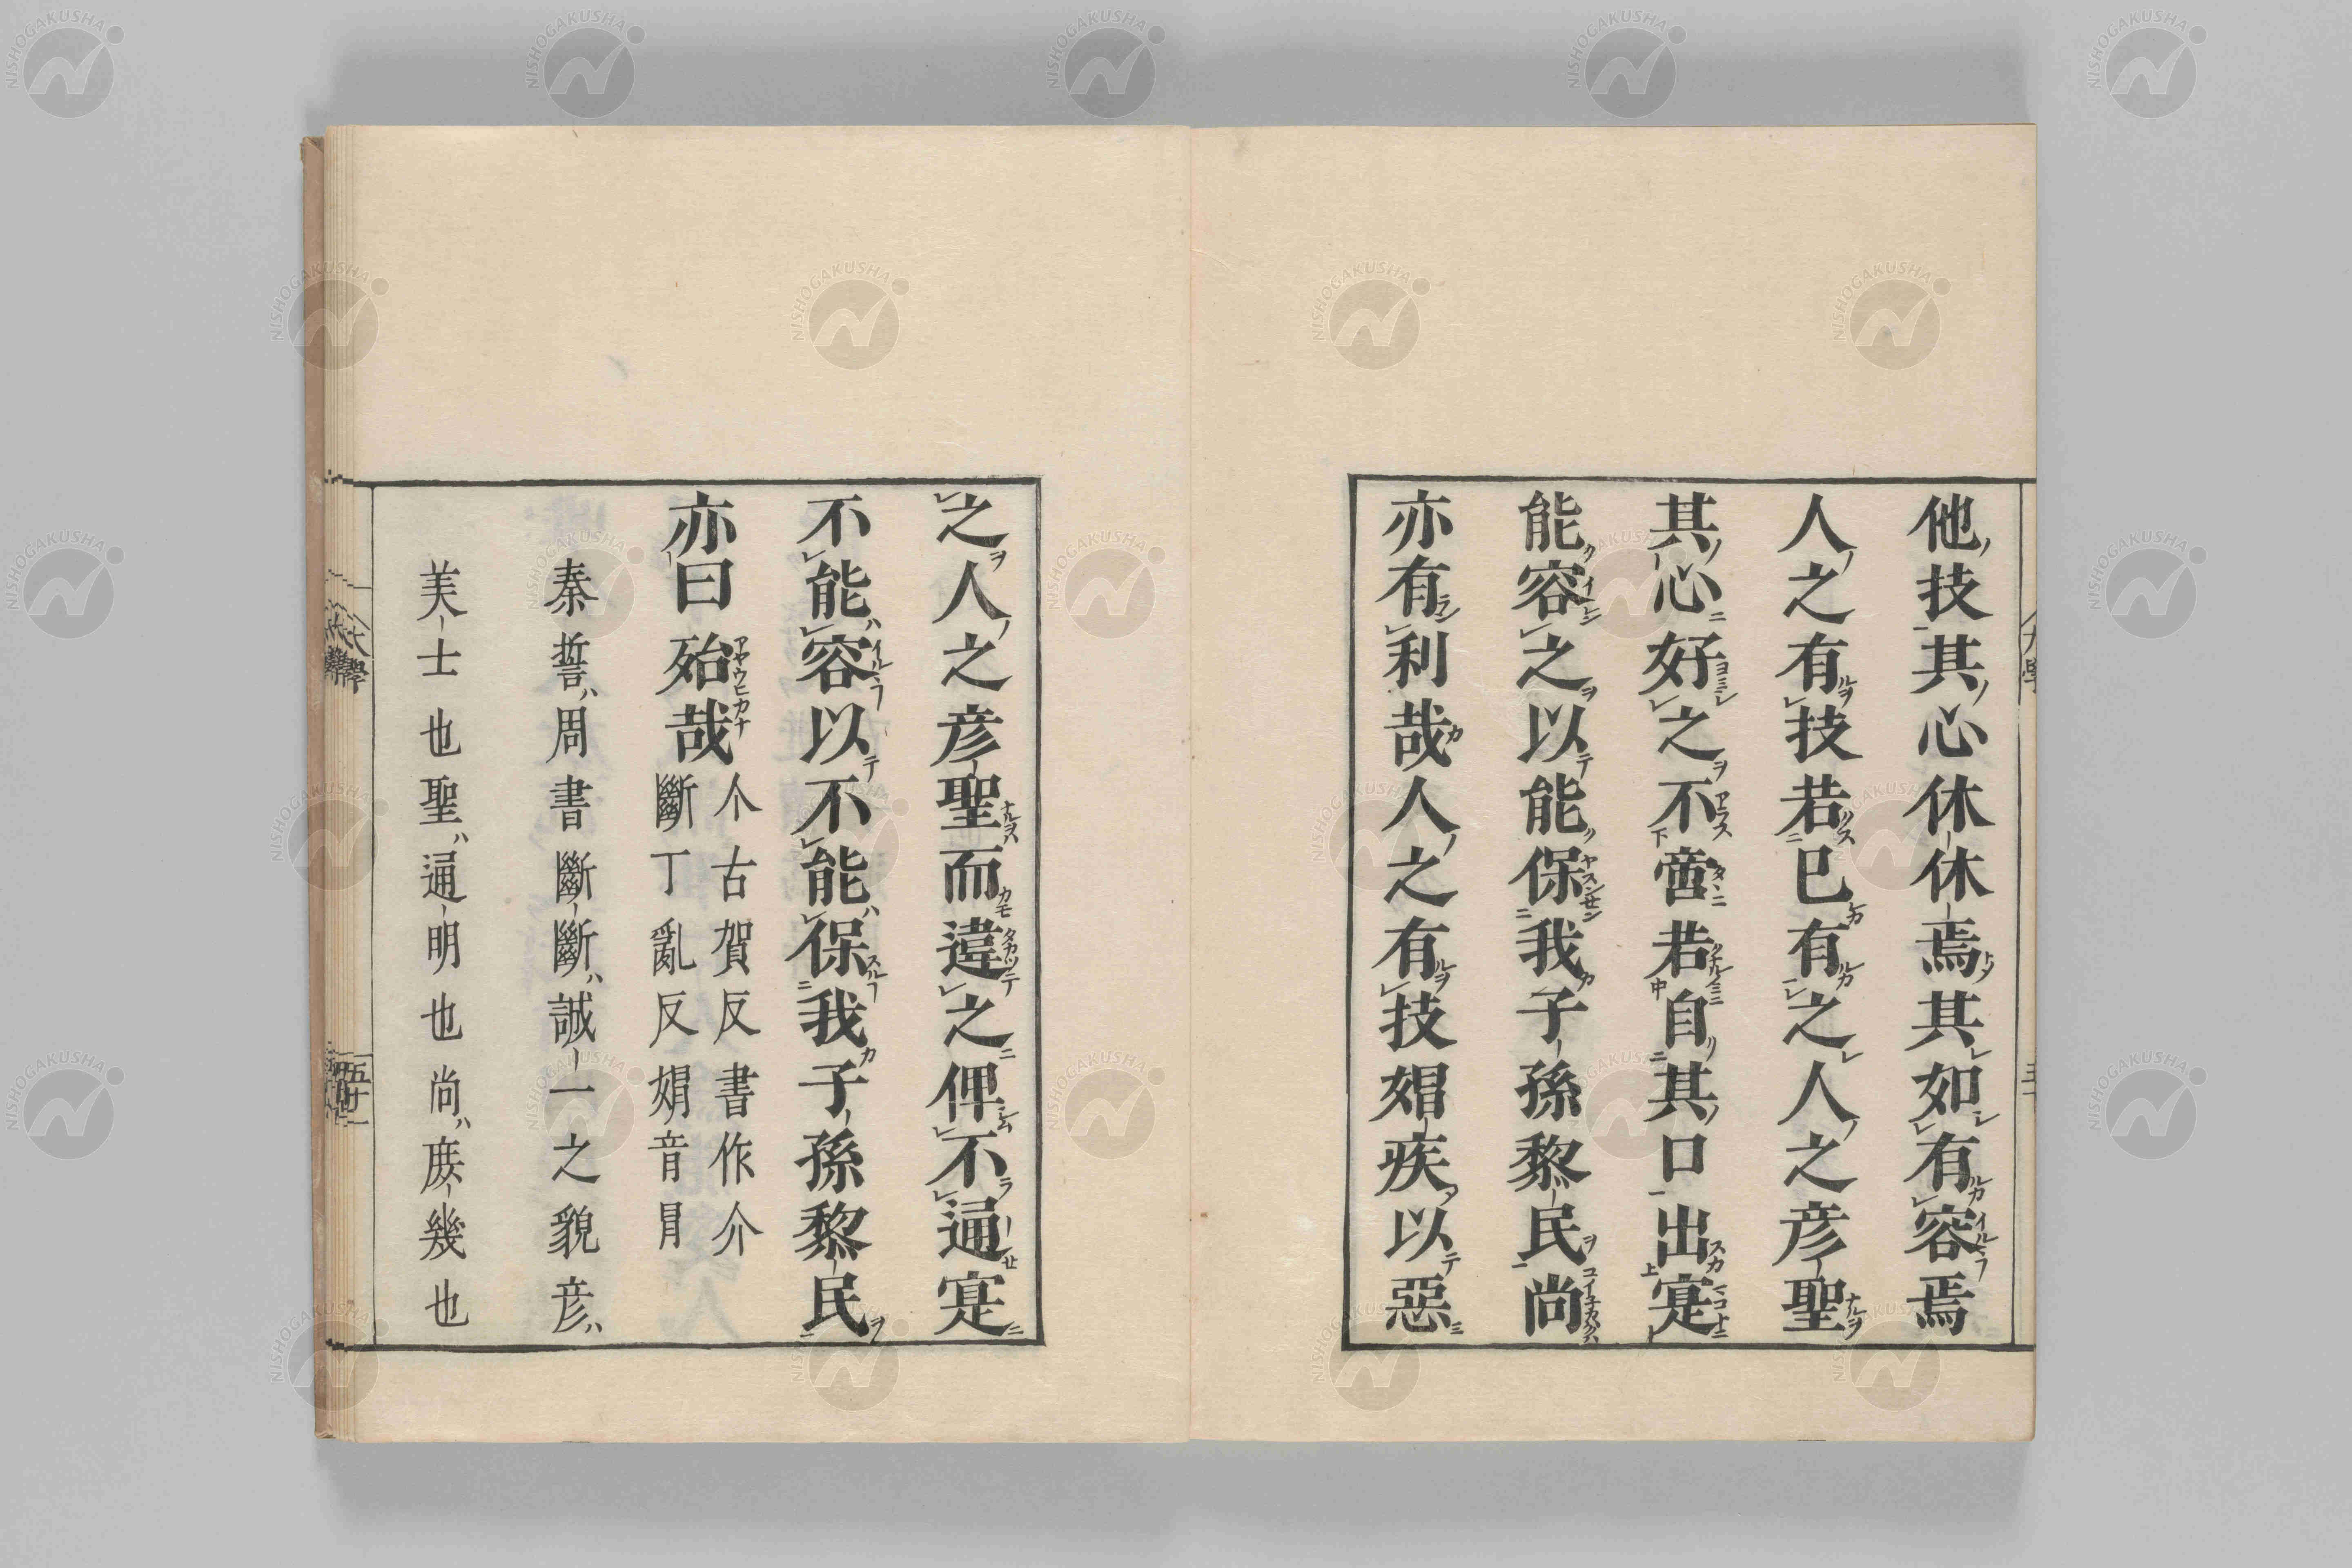 他技其心休休焉其如有容焉
人之有技若己有之人之彦聖
其心好之不啻若自其口出寔
能容之以能保我子孫黎民尚
亦有利哉人之有技媢疾以惡
之人之彦聖而違之俾不通寔
不能容以不能保我子孫黎民
亦曰殆哉
个古賀反書作介
斷丁亂反媢音冒
秦誓周書斷斷誠一之貌彦
美士也聖通明也尚庶幾也
大學
NISHOGAKUSHA